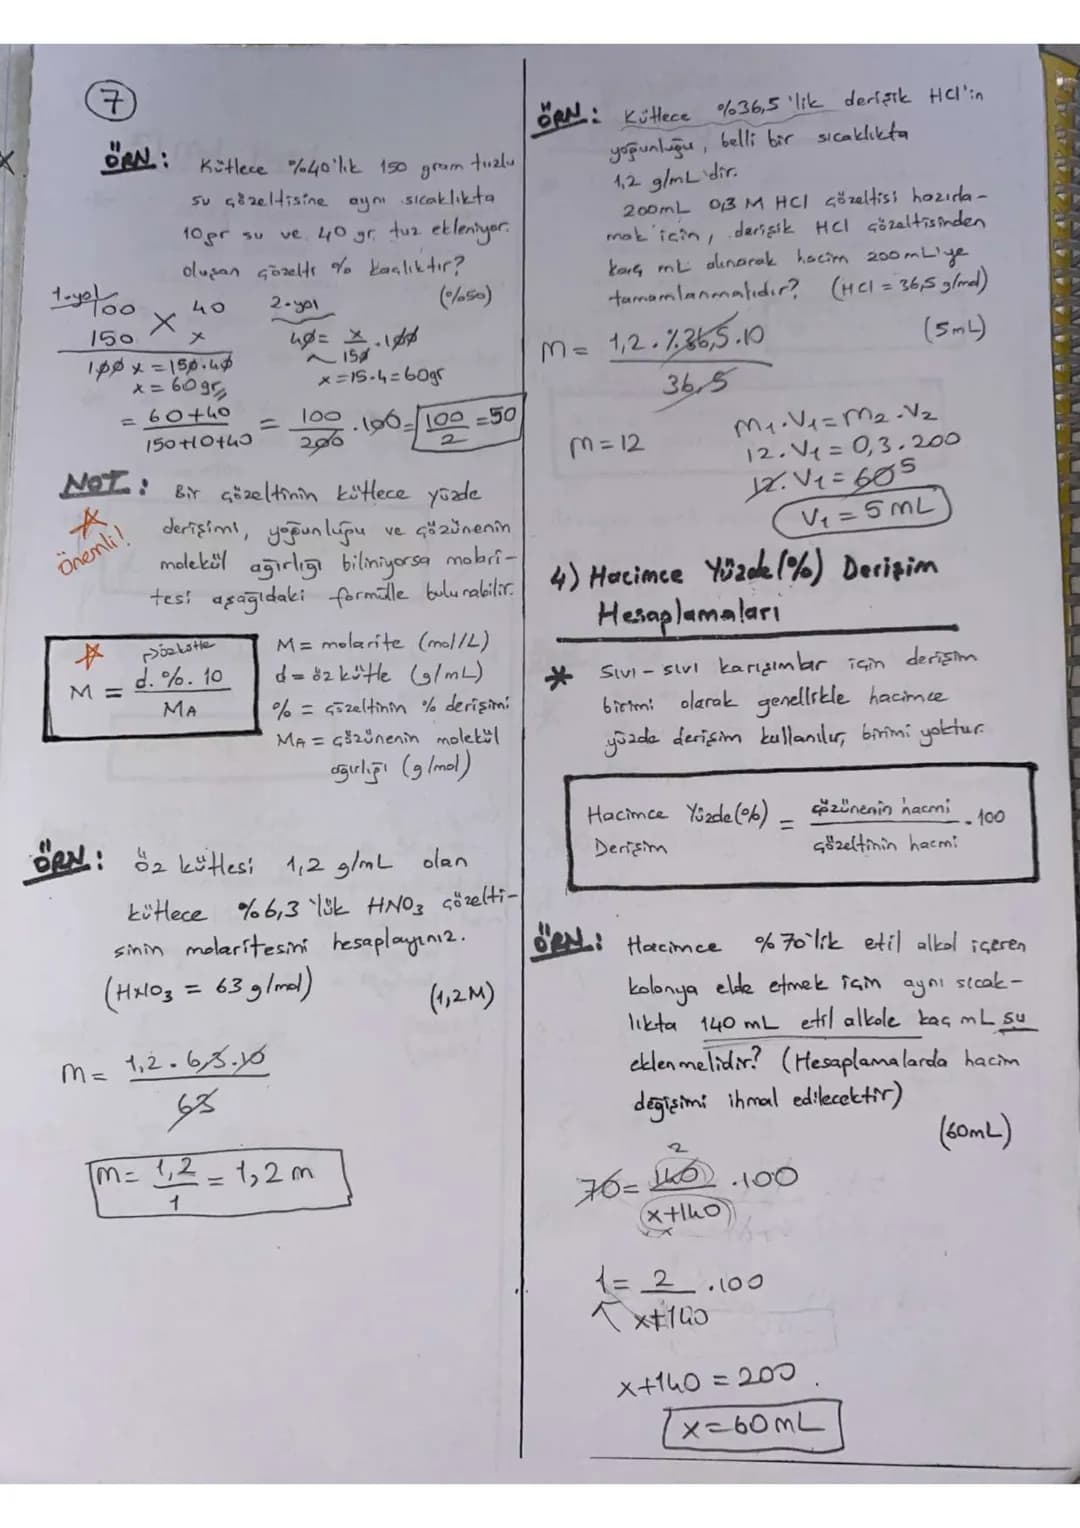 7
ÖRN: Kütlece %40'lık 150 gram tuzlu
su çözeltisine aynı sıcaklıkta
10gr su ve 40 gr tuz ekleniyor.
oluşan çözelti % kaçlıktır?
(%50)
1-yol
100 40
150 x
100x = 150.40
x = 60gr
2-yol
40 = x/150 . 100
x = 15.4 = 60gr
= 60+40 / 150+10+40 = 100/200 . 100 = 100/2 = 50
NOT: Bir çözeltinin kütlece yüzde
Önemli!
derişimi, yoğunluğu ve çözünenin
molekül ağırlığı biliniyorsa molari-
tesi aşağıdaki formülle bulunabilir.
özkütle
M = d.%.10 / MA
M = molarite (mol/L)
d = öz kütle (g/mL)
% = çözeltinin % derişimi
MA = çözünenin molekül
ağırlığı (g/mol)
ÖRN: öz kütlesi 1,2 g/mL olan
kütlece %6,3'lük HNO3 çözelti-
sinin molaritesini hesaplayınız.
(HNO3 = 63 g/mol) (1,2M)
M = 1,2 . 6,3 . 10 / 63
m = 1,2 / 1 = 1,2 m
ÖRN: Kütlece %36,5'lik derişik HCl'in
yoğunluğu, belli bir sıcaklıkta
1,2 g/mL'dir.
200mL 0,3 M HCl çözeltisi hazırla-
mak için, derişik HCl çözeltisinden
kaç mL alınarak hacim 200mL'ye
tamamlanmalıdır? (HCl = 36,5 g/mol)
(5mL)
M = 1,2 . %36,5 . 10 / 36,5
M = 12
M1.V1 = M2.V2
12.V1 = 0,3.200
12.V1 = 60 5
V1 = 5 mL
4) Hacimce Yüzde (%) Derişim
Hesaplamaları
* Sıvı - sıvı karışımlar için derişim
birimi olarak genellikle hacimce
yüzde derişim kullanılır, birimi yoktur.
Hacimce Yüzde (%) Derişim = çözünenin hacmi / çözeltinin hacmi . 100
ÖRN: Hacimce %70'lik etil alkol içeren
kolonya elde etmek için aynı sıcak-
lıkta 140 mL etil alkole kaç mL su
eklenmelidir? (Hesaplamalarda hacim
değişimi ihmal edilecektir)
(60mL)
2
70 = 140 / x+140 . 100
1 = 2 / x+140 . 100
x+140 = 200
x = 60mL